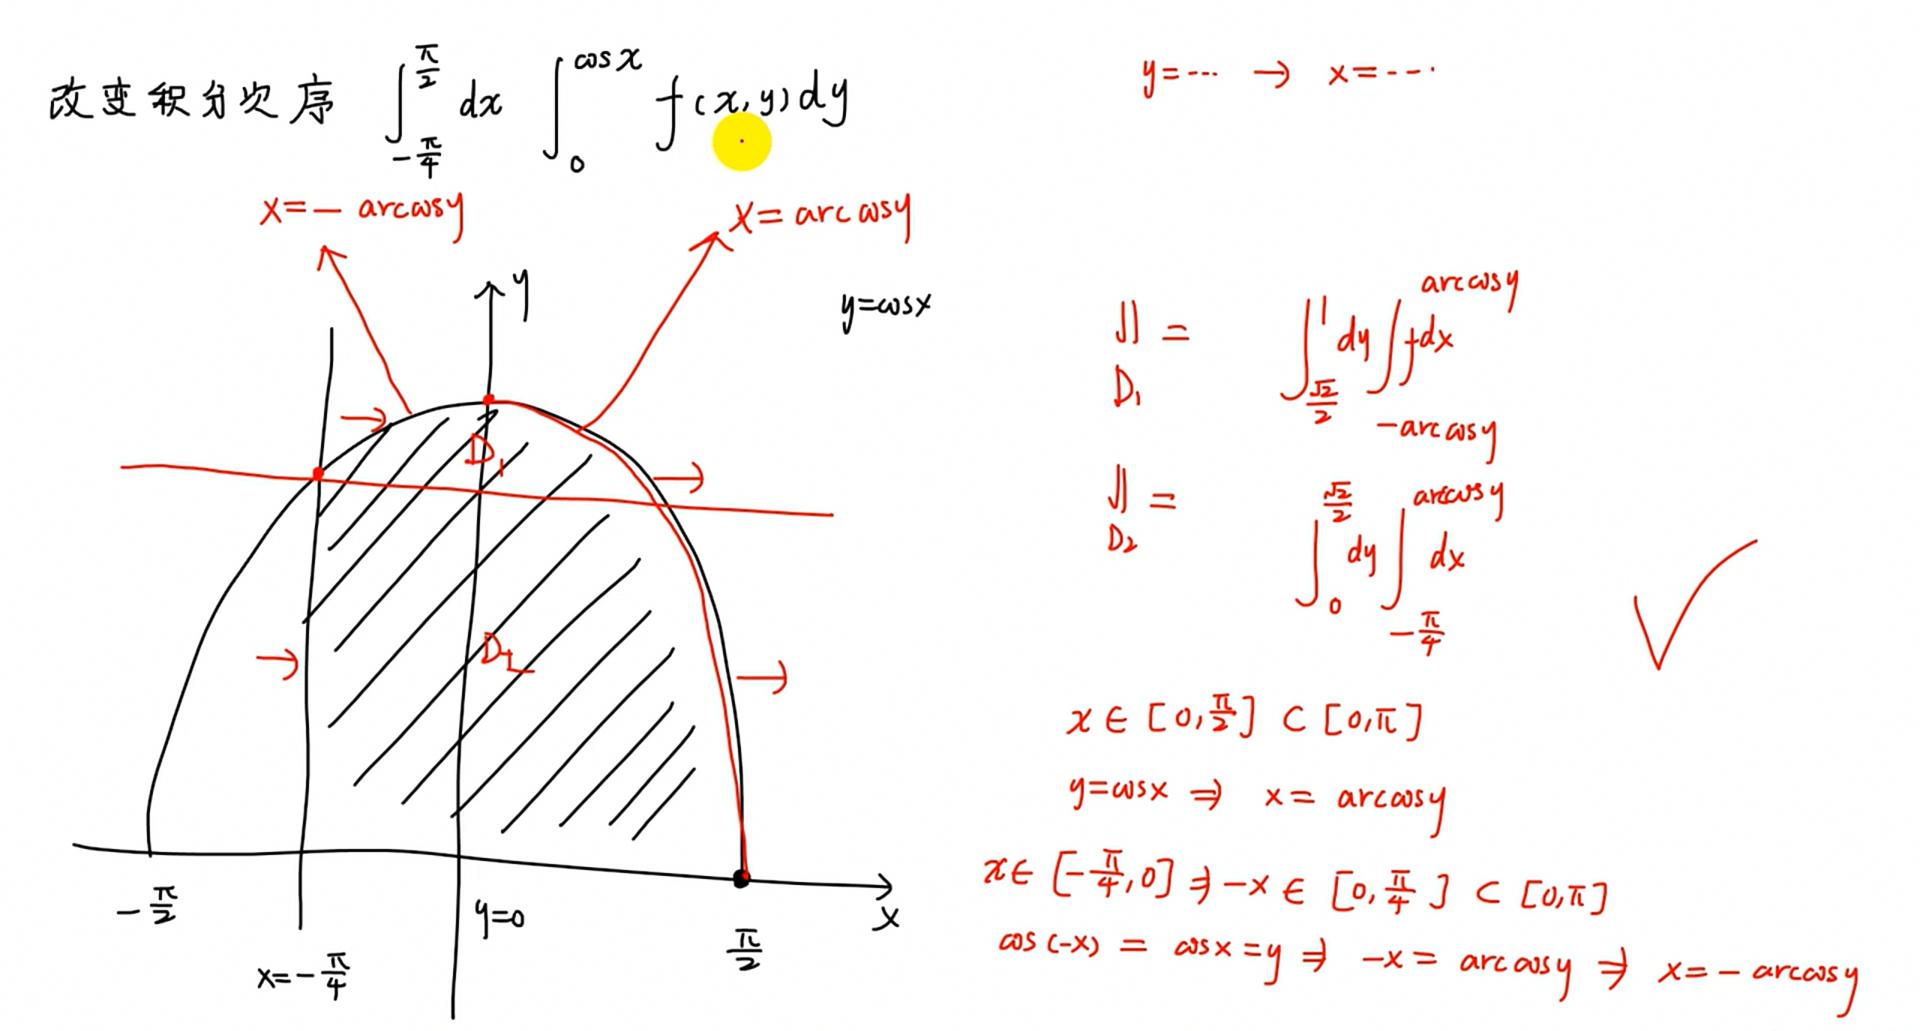 改变积分次序 ∫_{-π/4}^{π/2} dx ∫_0^{cosx} f(x,y)dy
y=··· → x=---·
x=-arccosy
x=arccosy
y
y=cosx
D₁
D₂
-π/2
x=-π/4
y=0
π/2
x
∬_{D₁} = ∫_{√2/2}^1 dy ∫_{-arccosy}^{arccosy} f dx
∬_{D₂} = ∫_0^{√2/2} dy ∫_{-π/4}^{arccosy} dx
x∈[0,π/2]⊂[0,π]
y=cosx ⇒ x=arccosy
x∈[-π/4,0]⇒-x∈[0,π/4]⊂[0,π]
cos(-x)=cosx=y⇒-x=arccosy⇒x=-arccosy